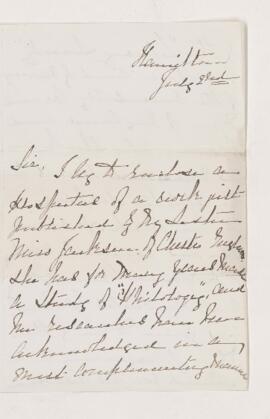 Hamilton
July 22nd
Sir. I beg to enclose a
prospectus of a work just
published by my Sister
Miss Jackson of Chester
She has for many years made
a study of "Philology", and
her researches have been
acknowledged in a
most complimentary manner